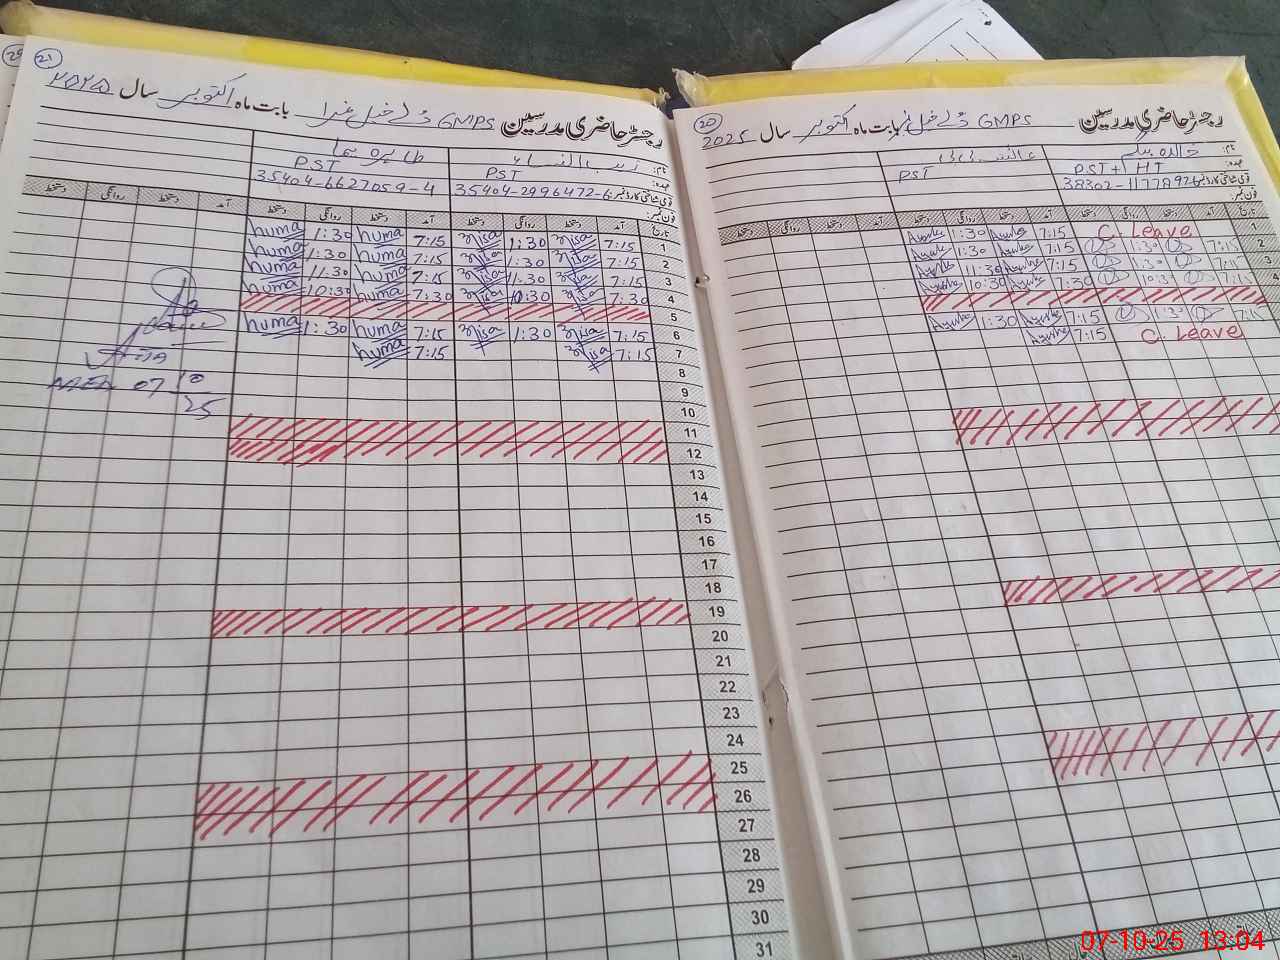 21
رجسٹر حاضری مدرسین GMPS دُلے خیل بابت ماہ اکتوبر سال ۲۰۲۵
نام: زیب النساء طاہرہ ہما
عہدہ: PST PST
قومی شناختی کارڈ نمبر: 35404-2996472-6 35404-6627059-4
فون نمبر:
تاریخ آمد دستخط روانگی دستخط آمد دستخط روانگی دستخط آمد دستخط روانگی دستخط
1 7:15 Nisa 1:30 Nisa 7:15 huma 1:30 huma
2 7:15 Nisa 1:30 Nisa 7:15 huma 1:30 huma
3 7:15 Nisa 11:30 Nisa 7:15 huma 11:30 huma
4 7:30 Nisa 10:30 Nisa 7:30 huma 10:30 huma
5
6 7:15 Nisa 1:30 Nisa 7:15 huma 1:30 huma
7 7:15 Nisa 7:15 huma
8
9
10
11
12
13
14
15
16
17
18
19
20
21
22
23
24
25
26
27
28
29
30
31
07 10
25
20
رجسٹر حاضری مدرسین GMPS دُلے خیل بابت ماہ اکتوبر سال 2025
نام: خالدہ بیگم
عہدہ: PST+HT PST
قومی شناختی کارڈ نمبر:
فون نمبر:
تاریخ آمد دستخط روانگی دستخط آمد دستخط روانگی دستخط آمد دستخط روانگی دستخط
1 C. Leave 7:15 Ayesha 1:30 Ayesha
2 7:15 1:30 7:15 Ayesha 1:30 Ayesha
3 7:15 11:30 7:15 Ayesha 11:30 Ayesha
4 7:15 10:30 7:30 Ayesha 10:30 Ayesha
7:15 1:30 7:15 Ayesha 1:30 Ayesha
C. Leave 7:15 Ayesha
07-10-25 13:04